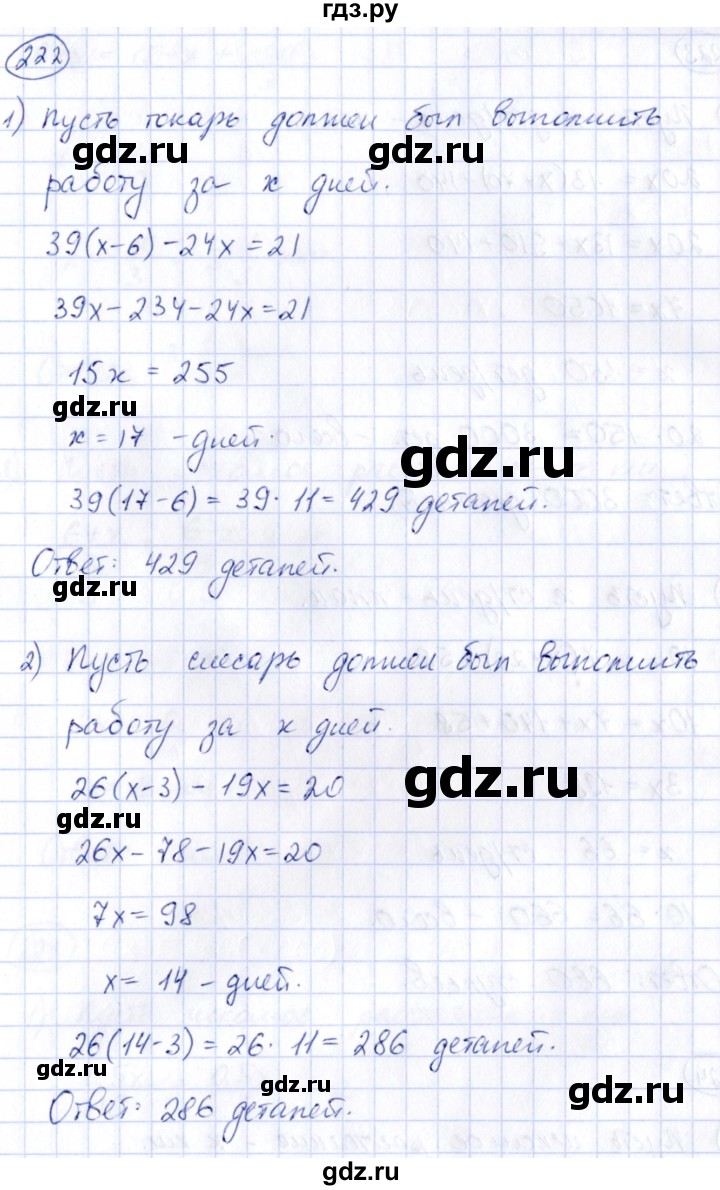 гдз.ру
222
1) Пусть токарь должен был выполнить
gdz.ru gdz.ru
работу за x дней.
39(x-6)-24x=21
39x-234-24x=21
15x=255
gdz.ru
x=17 - дней.
gdz.ru
39(17-6)=39·11=429 деталей.
Ответ: 429 деталей.
gdz.ru
2) Пусть слесарь должен был выполнить
работу за x дней.
gdz.ru
26(x-3)-19x=20
gdz.ru
26x-78-19x=20
7x=98
x=14-дней.
26(14-3)=26·11=286 деталей.
gdz.ru gdz.ru
Ответ: 286 деталей.
gdz.ru